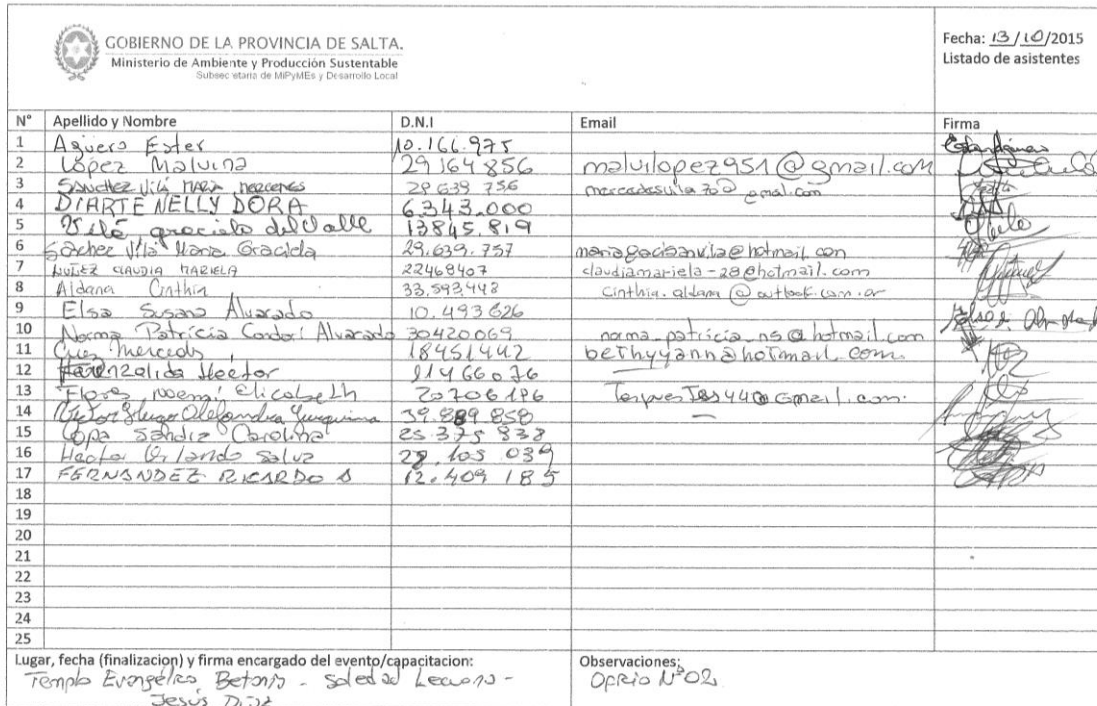 GOBIERNO DE LA PROVINCIA DE SALTA.
Ministerio de Ambiente y Producción Sustentable
Subsecretaria de MiPyMEs y Desarrollo Local
Fecha: 13/10/2015
Listado de asistentes
N° Apellido y Nombre D.N.I Email Firma
1 Aguero Ester 10.166.975
2 López Malvina 29164856 malvilopez951@gmail.com
3 Sanchez Vilá Maria Mercedes 29 639 756 mercedesvila70@gmail.com
4 DIARTE NELLY DORA 6.343.000
5 Vilá graciela del Valle 13845.819
6 Sachez Vilá Maria Graciela 29.639.757
7 NUÑEZ CLAUDIA MARIELA 22468407 claudiamariela-28@hotmail.com
8 Aldana Cinthia 33.593.448 cinthia.aldana@outlook.com.ar
9 Elsa Susana Alvarado 10.493626
10 Norma Patricia Condorí Alvarado 30420069 norma_patricia_ns@hotmail.com
11 Cruz Mercedes 18451442 bethyyann@hotmail.com
12 Hector
13 Flores noemi Elizabeth 20706196
14 39.889.858
15 Copa Carolina 25.375 838
16 Hector Orlando 28.105 039
17 FERNANDEZ RICARDO A 12.409 185
18
19
20
21
22
23
24
25
Lugar, fecha (finalizacion) y firma encargado del evento/capacitacion:
Templo Evangélico Betania - Soledad -
Jesús Díaz
Observaciones:
N°02